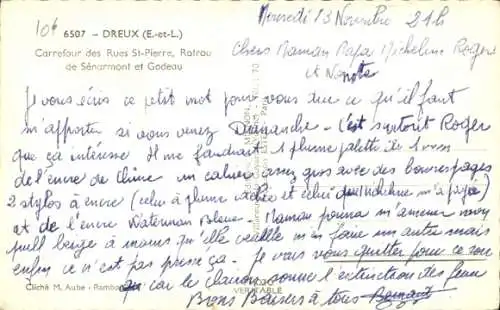 10f
6507 - DREUX (E.-et-L.)
Carrefour des Rues St-Pierre, Rotrou
de Sénarmont et Godeau
Mercredi 13 Novembre 21h
Chers Maman Papa Micheline Roger
et
Je vous écris ce petit mot pour vous dire ce qu'il faut
m'apporter si vous venez Dimanche. C'est surtout Roger
que ça intéresse Il me faudrait 1 plume palette de 1 mm
de l'encre de Chine un cahier assez gros avec des bonnes pages
2 stylos à encre (celui à plume cachée et celui que Micheline m'a payé)
et de l'encre Waterman Bleue. Maman pourra m'amener mon
pull beige à moins qu'elle veuille m'en faire un autre mais
enfin ce n'est pas pressé ça. Je vais vous quitter pour ce soir
car le clairon sonne l'extinction des feux
Bons Baisers à tous
Cliché M. Aube - Rambo
VÉRITABLE